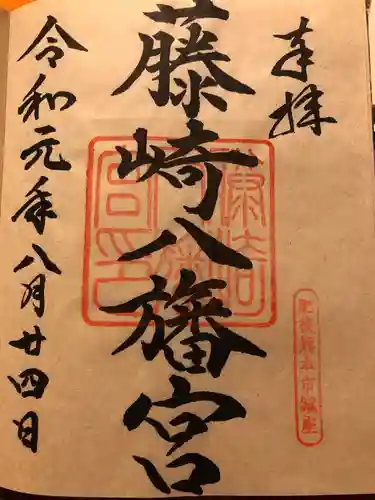 奉拝
藤崎八旛宮
令和元年八月廿四日
肥後熊本市鎮座